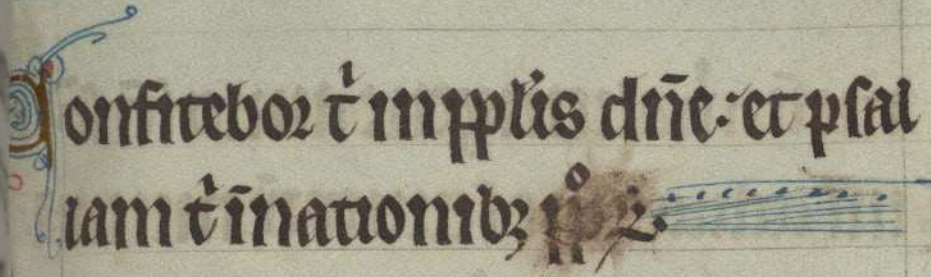 Confitebor t̄ in pp̄lis dn̄e· et psal
lam t̄ in nationibꝫ